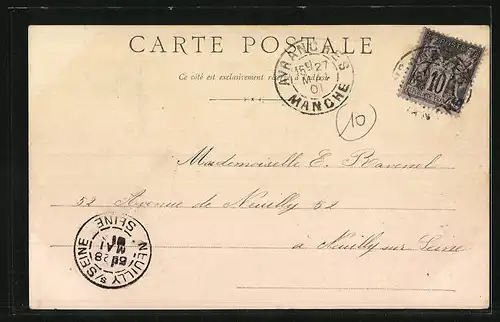 CARTE POSTALE
Ce côté est exclusivement réservé à l'adresse
AVRANCHES
27
01
MANCHE
10
10
Mademoiselle E. Ravenel
52 Avenue de Neuilly 52
à Neuilly sur Seine
NEUILLY S/SEINE
28
MAI
01
SEINE